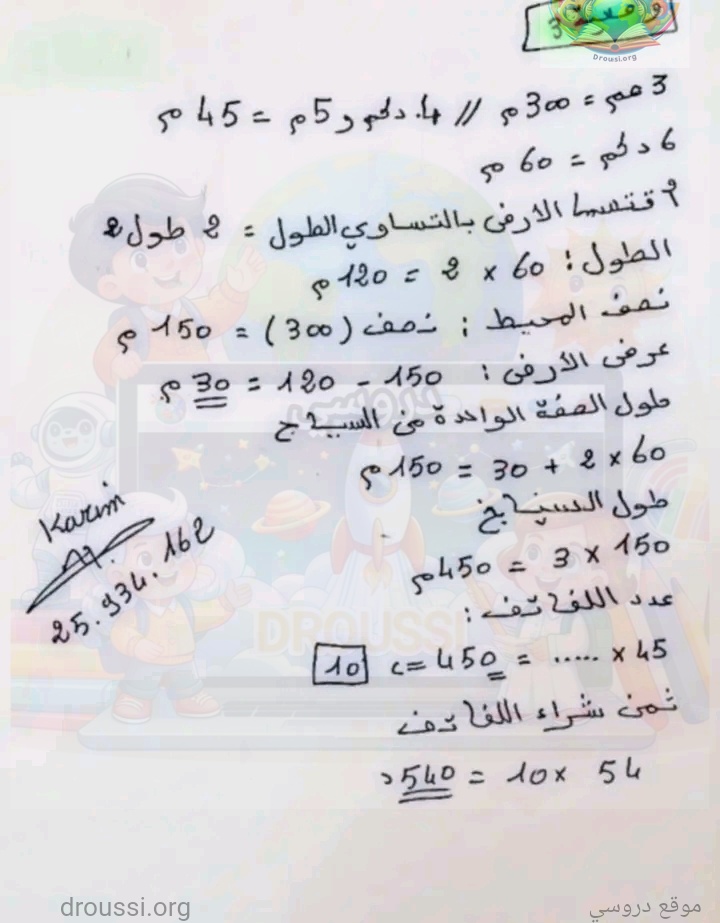 وضعية 3
Droussi.org
3 هم = 300 م // 4 دكم و 5م = 45 م
6 دكم = 60 م
اقتسما الارض بالتساوي الطول = 2 طول 2
الطول : 60 × 2 = 120 م
نصف المحيط : نصف (300) = 150 م
عرض الأرض : 150 - 120 = 30 م
دروسي
طول الصفة الواحدة من السياج
60 × 2 + 30 = 150 م
طول السياج
150 × 3 = 450 م
Karim
25.934.162
عدد اللفائف :
DROUSSI
45 × ..... = 450 => 10
ثمن شراء اللفائف
54 × 10 = 540 د
droussi.org
موقع دروسي